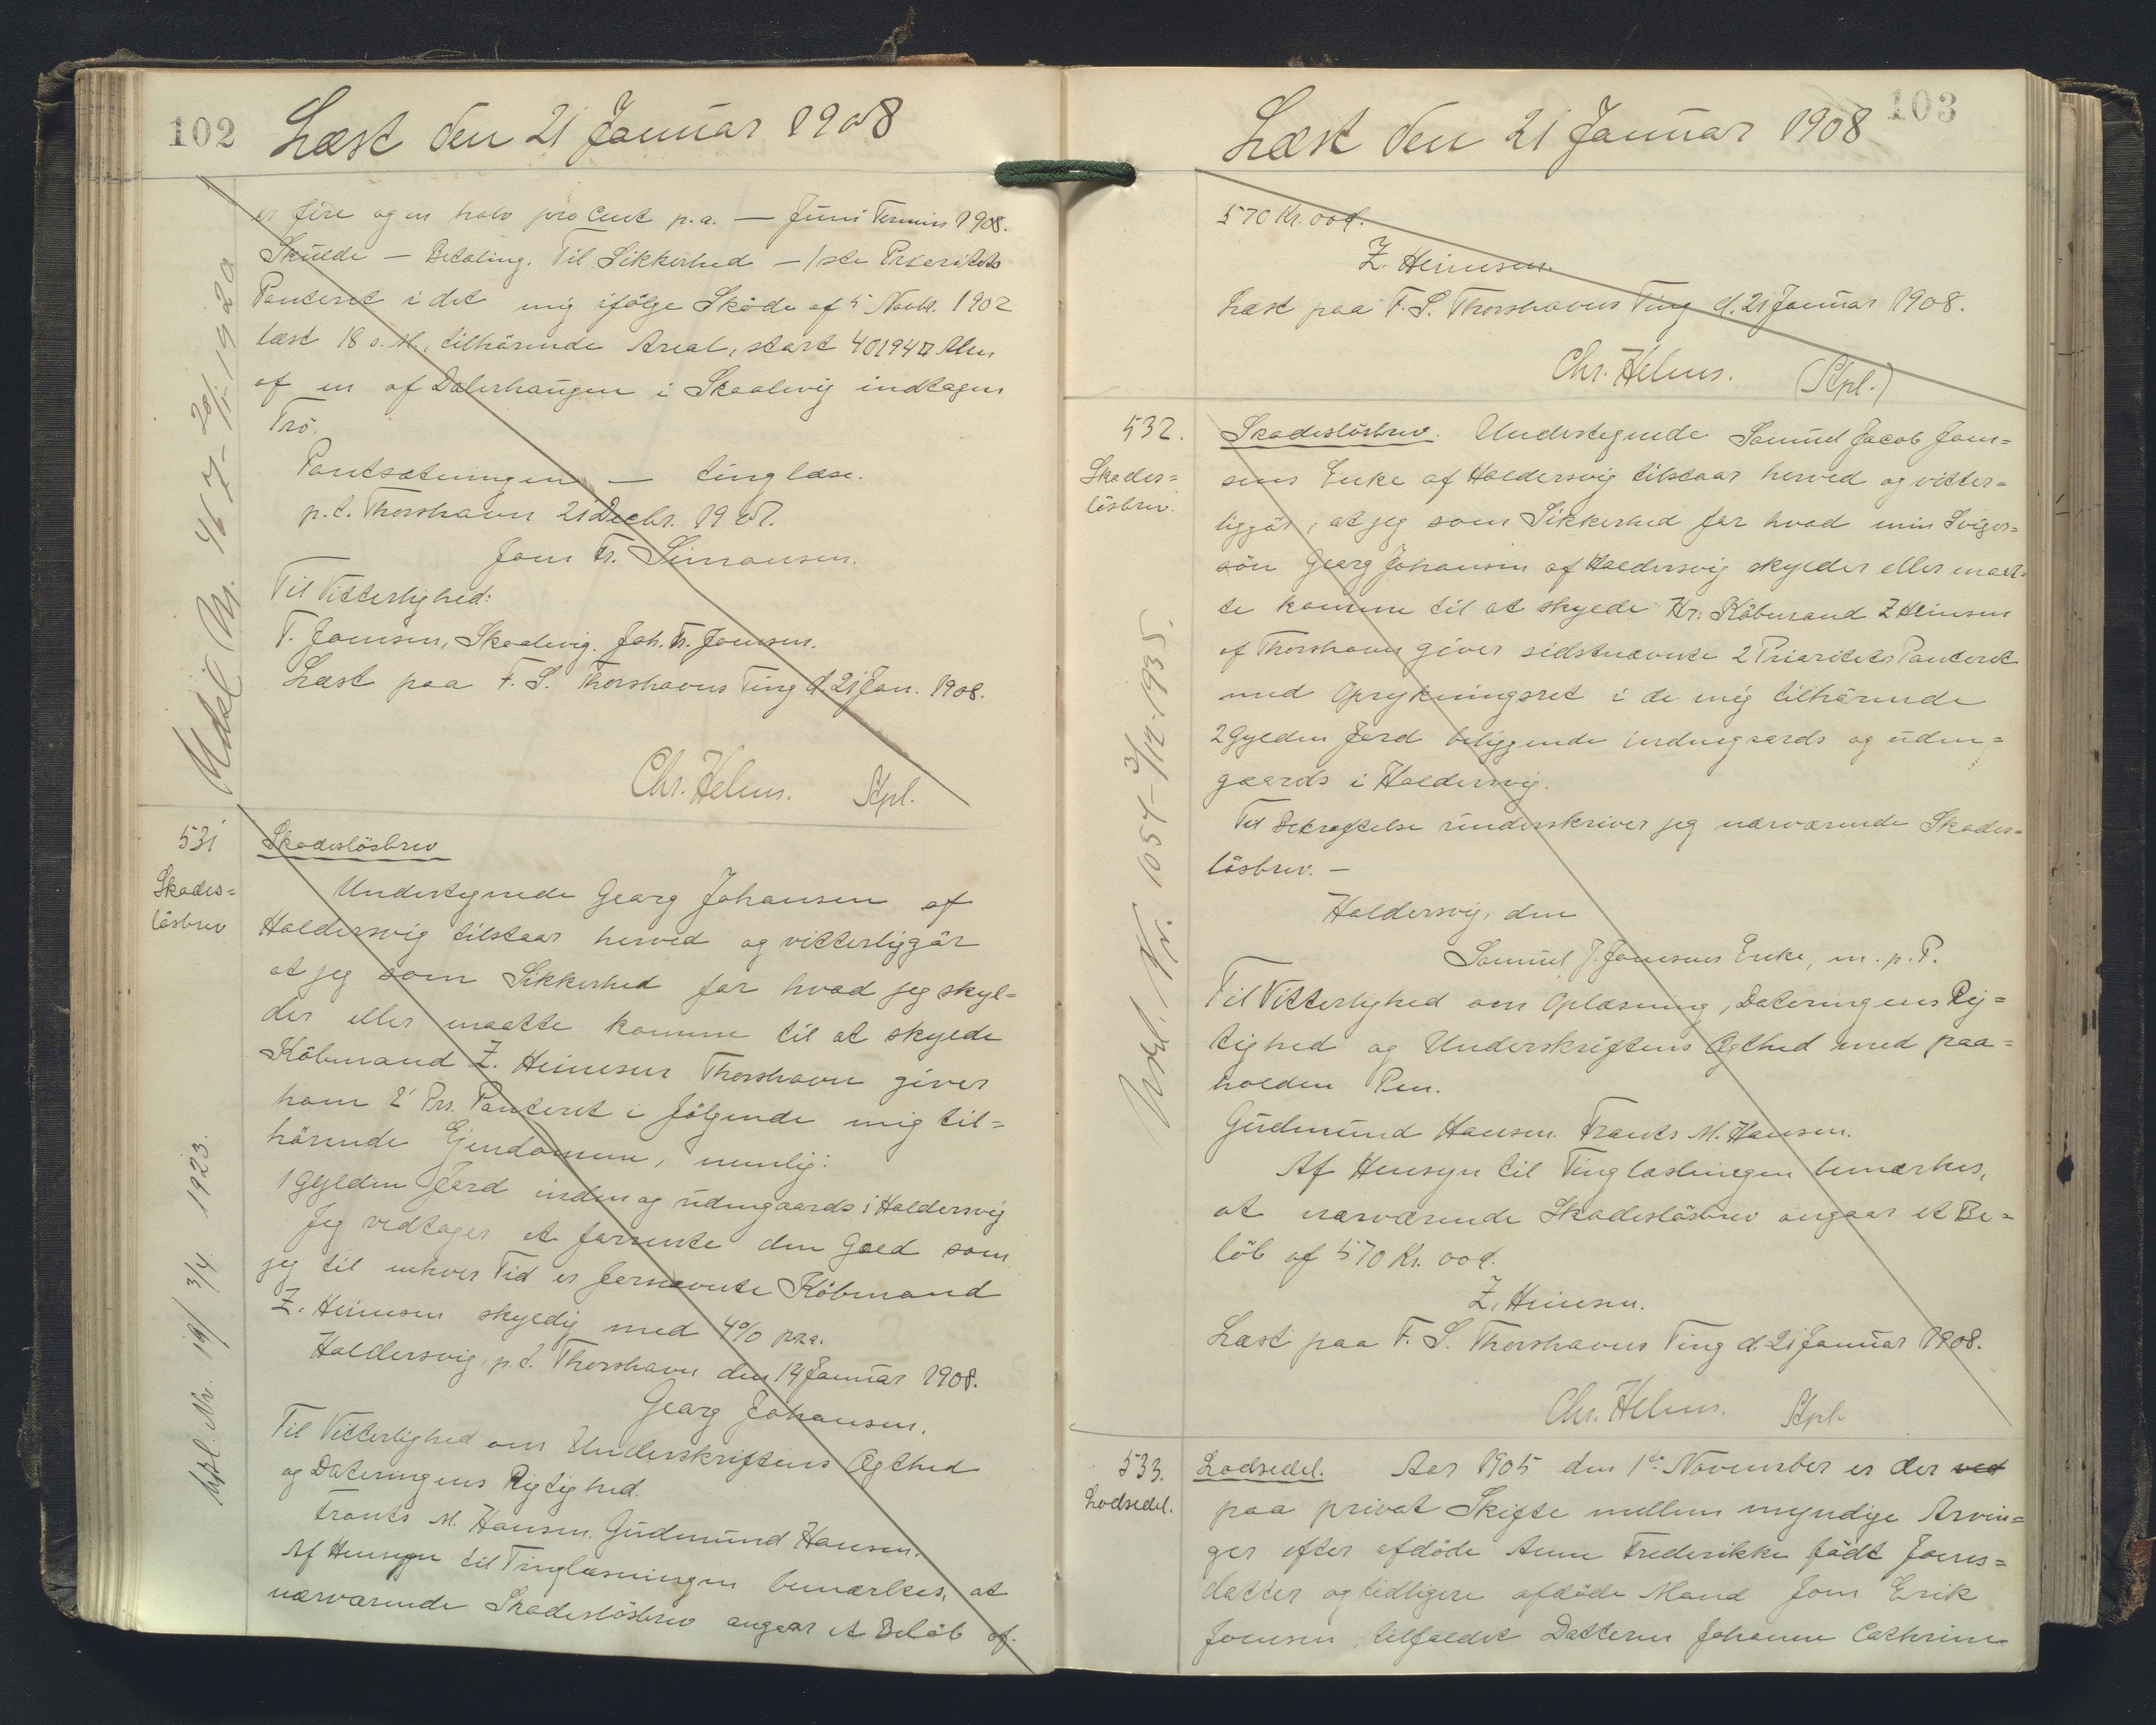 102
Læst den 21 Januar 1908
er fire og en halv pro Cent p.a. — Juni Termin 1908.
Skulde — Betaling. Til Sikkerhed — 1ste Prioritets
Panteret i det mig ifølge Skøde af 5 Novbr. 1902
læst 18 s. M., tilhørende Areal, stort 40194 □ Alen
af en af Dalerhaugen i Skaalevig indtagen
Trö.
Pantsætningen — tinglæse.
p.t. Thorshavn 21 Decbr. 1907.
Joen Fr. Simonsen.
Til Vitterlighed:
T. Joensen, Skaalevig. Joh. Fr. Joensen.
Læst paa F. S. Thorshavns Ting d. 21 Jan. 1908.
Chr. Helms. Stpl.
Udsl. Nr. 467 - 20/1 - 1920
531
Skades=
lösbrev
Skadeslösbrev
Undertegnede Georg Johansen af
Haldersvig tilstaar herved og vitterliggör
at jeg som Sikkerhed for hvad jeg skyl=
der eller maatte komme til at skylde
Köbmand Z. Heinesen Thorshavn giver
ham 2' Prs. Panteret i følgende mig til=
hörende Ejendomme, nemlig:
1 Gylden Jord inden og udengaards i Haldersvig
Jeg vedtager at forrente den Gæld som
jeg til enhver Tid er fornævnte Köbmand
Z. Heinesen skyldig med 4% p.a.
Haldersvig, p.t. Thorshavn den 19 Januar 1908.
Georg Johansen.
Til Vitterlighed om Underskriftens Ægthed
og Dateringens Rigtighed.
Frants M. Hansen. Gudmund Hansen.
Af Hensyn til Tinglæsningen bemærkes, at
nærværende Skadeslösbrev angaar et Belöb af
Udsl. Nr. 19/ 3/4 1923.
103
Læst den 21 Januar 1908
570 Kr. 00 d.
Z. Heinesen.
Læst paa F. S. Thorshavns Ting d. 21 Januar 1908.
Chr. Helms. (Stpl.)
532.
Skades=
lösbrev.
Skadeslösbrev. Undertegnede Samuel Jacob Joen=
sens Enke af Haldersvig tilstaar herved og vitter=
liggör, at jeg som Sikkerhed for hvad min Sviger=
sön Georg Johansen af Haldersvig skylder eller maat=
te komme til at skylde Hr. Köbmand Z Heinesen
af Thorshavn giver sidstnævnte 2 Prioritets Panteret
med Oprykningsret i de mig tilhørende
2 Gylden Jord beliggende indengaards og uden=
gaards i Haldersvig.
Til Bekræftelse underskriver jeg nærværende Skades=
lösbrev. —
Haldersvig, den
Samuel J. Joensens Enke, m. p. P.
Til Vitterlighed om Oplæsning, Dateringens Rig=
tighed og Underskriftens Ægthed med paa=
holden Pen.
Gudmund Hansen. Frants M. Hansen.
Af Hensyn til Tinglæsningen bemærkes,
at nærværende Skadeslösbrev angaar et Be=
löb af 570 Kr. 00 d.
Z. Heinesen.
Læst paa F. S. Thorshavns Ting d. 21 Januar 1908.
Chr. Helms. Stpl.
Udsl. Nr. 1054 - 3/12 - 1935.
533.
Lodsedel.
Lodsedel. Aar 1905 den 1ste November er der ved
paa privat Skifte mellem myndige Arvin=
ger efter afdöde Anne Frederikke födt Joens=
datter og tidligere afdöde Mand Joen Erik
Joensen tilfaldet Datteren Johanne Cathrine